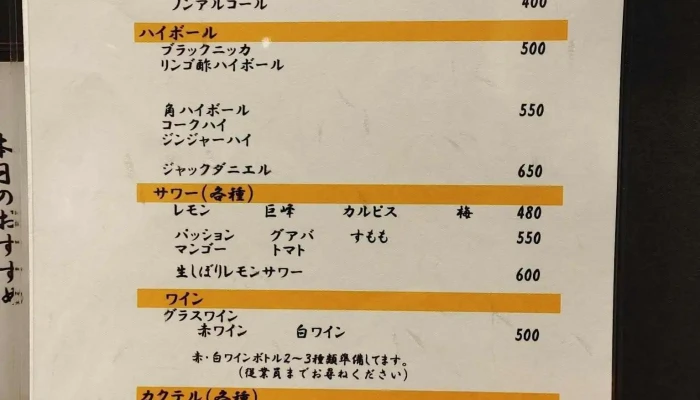 ノンアルコール 400
ハイボール
ブラックニッカ 500
リンゴ酢ハイボール
角ハイボール 550
コークハイ
ジンジャーハイ
ジャックダニエル 650
サワー(各種)
レモン 巨峰 カルピス 梅 480
パッション グアバ すもも 550
マンゴー トマト
生しぼりレモンサワー 600
ワイン
グラスワイン
赤ワイン 白ワイン 500
赤・白ワインボトル2〜3種類準備してます。
(従業員までお尋ねください)
カクテル(各種)
本日のおすすめ